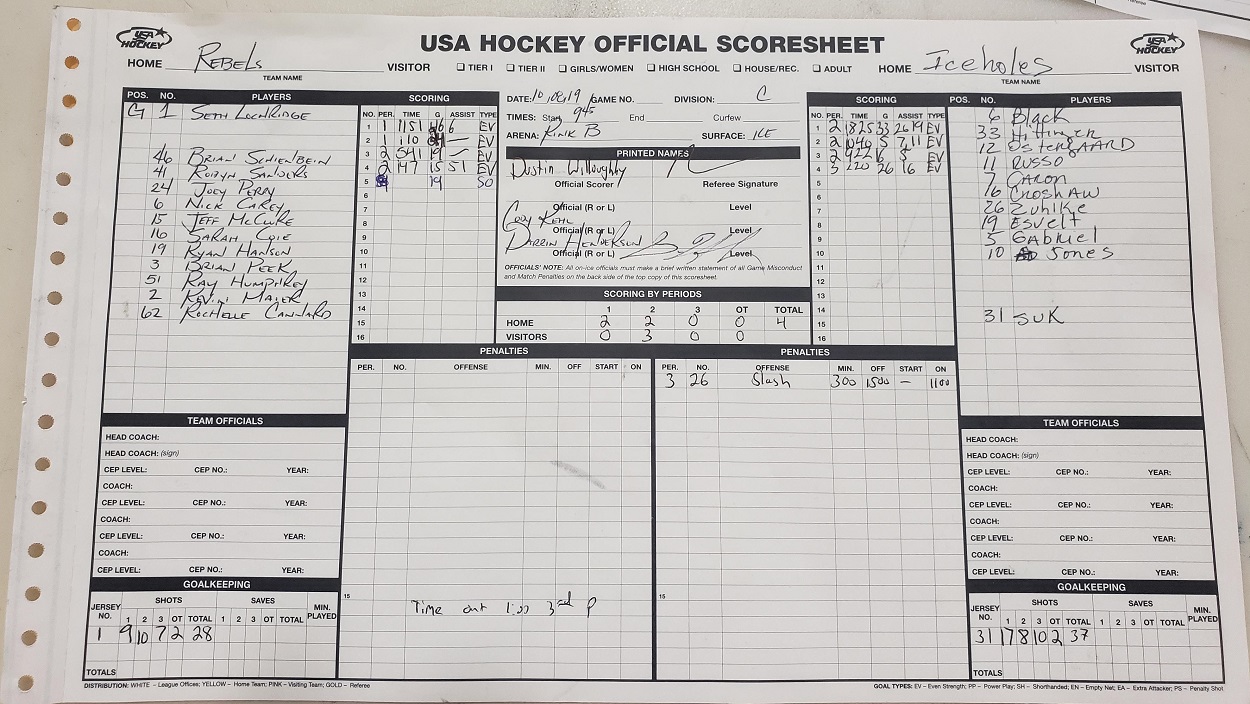 USA HOCKEY OFFICIAL SCORESHEET
USA HOCKEY
USA HOCKEY
HOME REBELS VISITOR
TEAM NAME
☐ TIER I ☐ TIER II ☐ GIRLS/WOMEN ☐ HIGH SCHOOL ☐ HOUSE/REC. ☐ ADULT
HOME Iceholes VISITOR
TEAM NAME
POS. NO. PLAYERS
G 1 SETH
46 BRIAN SCHIENBEIN
41 ROBYN SANDERS
24 JOEY PERRY
6 NICK CAREY
15 JEFF McCLURE
16 SARAH COIE
19 RYAN HANSON
3 BRIAN PEEK
51 RAY HUMPHREY
2 KEVIN MAIER
62 ROCHELLE CANNARD
SCORING
NO. PER. TIME G ASSIST TYPE
1 1 1151 46 6 EV
2 1 110 — EV
3 2 541 19 — EV
4 2 147 15 51 EV
5 19 SO
6
7
8
9
10
11
12
13
14
15
16
DATE: 10/08/19 GAME NO. DIVISION: C
TIMES: Start 945 End Curfew
ARENA: RINK B SURFACE: ICE
PRINTED NAMES
Dustin Willoughby
Official Scorer Referee Signature
Official (R or L) Level
Cody Kehl
Official (R or L) Level
Darrin Henderson
Official (R or L) Level
OFFICIALS' NOTE: All on-ice officials must make a brief written statement of all Game Misconduct
and Match Penalties on the back side of the top copy of this scoresheet.
SCORING BY PERIODS
1 2 3 OT TOTAL
HOME 2 2 0 0 4
VISITORS 0 3 0 0
SCORING
NO. PER. TIME G ASSIST TYPE
1 2 1825 33 26 19 EV
2 2 1040 5 7,11 EV
3 2 922 6 5 EV
4 3 220 26 16 EV
5
6
7
8
9
10
11
12
13
14
15
16
POS. NO. PLAYERS
6 Black
33
12 OSTERGAARD
11 RUSSO
7 CARON
16 CROSHAW
26 Zuhlke
19 Esvelt
5 GABRIEL
10 Jones
31 SUK
PENALTIES
PER. NO. OFFENSE MIN. OFF START ON
15 Time out 1:00 3rd P
PENALTIES
PER. NO. OFFENSE MIN. OFF START ON
3 26 Slash 300 1500 — 1100
15
TEAM OFFICIALS
HEAD COACH:
HEAD COACH: (sign)
CEP LEVEL: CEP NO.: YEAR:
COACH:
CEP LEVEL: CEP NO.: YEAR:
COACH:
CEP LEVEL: CEP NO.: YEAR:
COACH:
CEP LEVEL: CEP NO.: YEAR:
GOALKEEPING
JERSEY NO. SHOTS SAVES MIN. PLAYED
1 2 3 OT TOTAL 1 2 3 OT TOTAL
1 9 10 7 2 28
TOTALS
TEAM OFFICIALS
HEAD COACH:
HEAD COACH: (sign)
CEP LEVEL: CEP NO.: YEAR:
COACH:
CEP LEVEL: CEP NO.: YEAR:
COACH:
CEP LEVEL: CEP NO.: YEAR:
COACH:
CEP LEVEL: CEP NO.: YEAR:
GOALKEEPING
JERSEY NO. SHOTS SAVES MIN. PLAYED
1 2 3 OT TOTAL 1 2 3 OT TOTAL
31 17 8 10 2 37
TOTALS
DISTRIBUTION: WHITE – League Offices; YELLOW – Home Team; PINK – Visiting Team; GOLD – Referee
GOAL TYPES: EV – Even Strength; PP – Power Play; SH – Shorthanded; EN – Empty Net; EA – Extra Attacker; PS – Penalty Shot